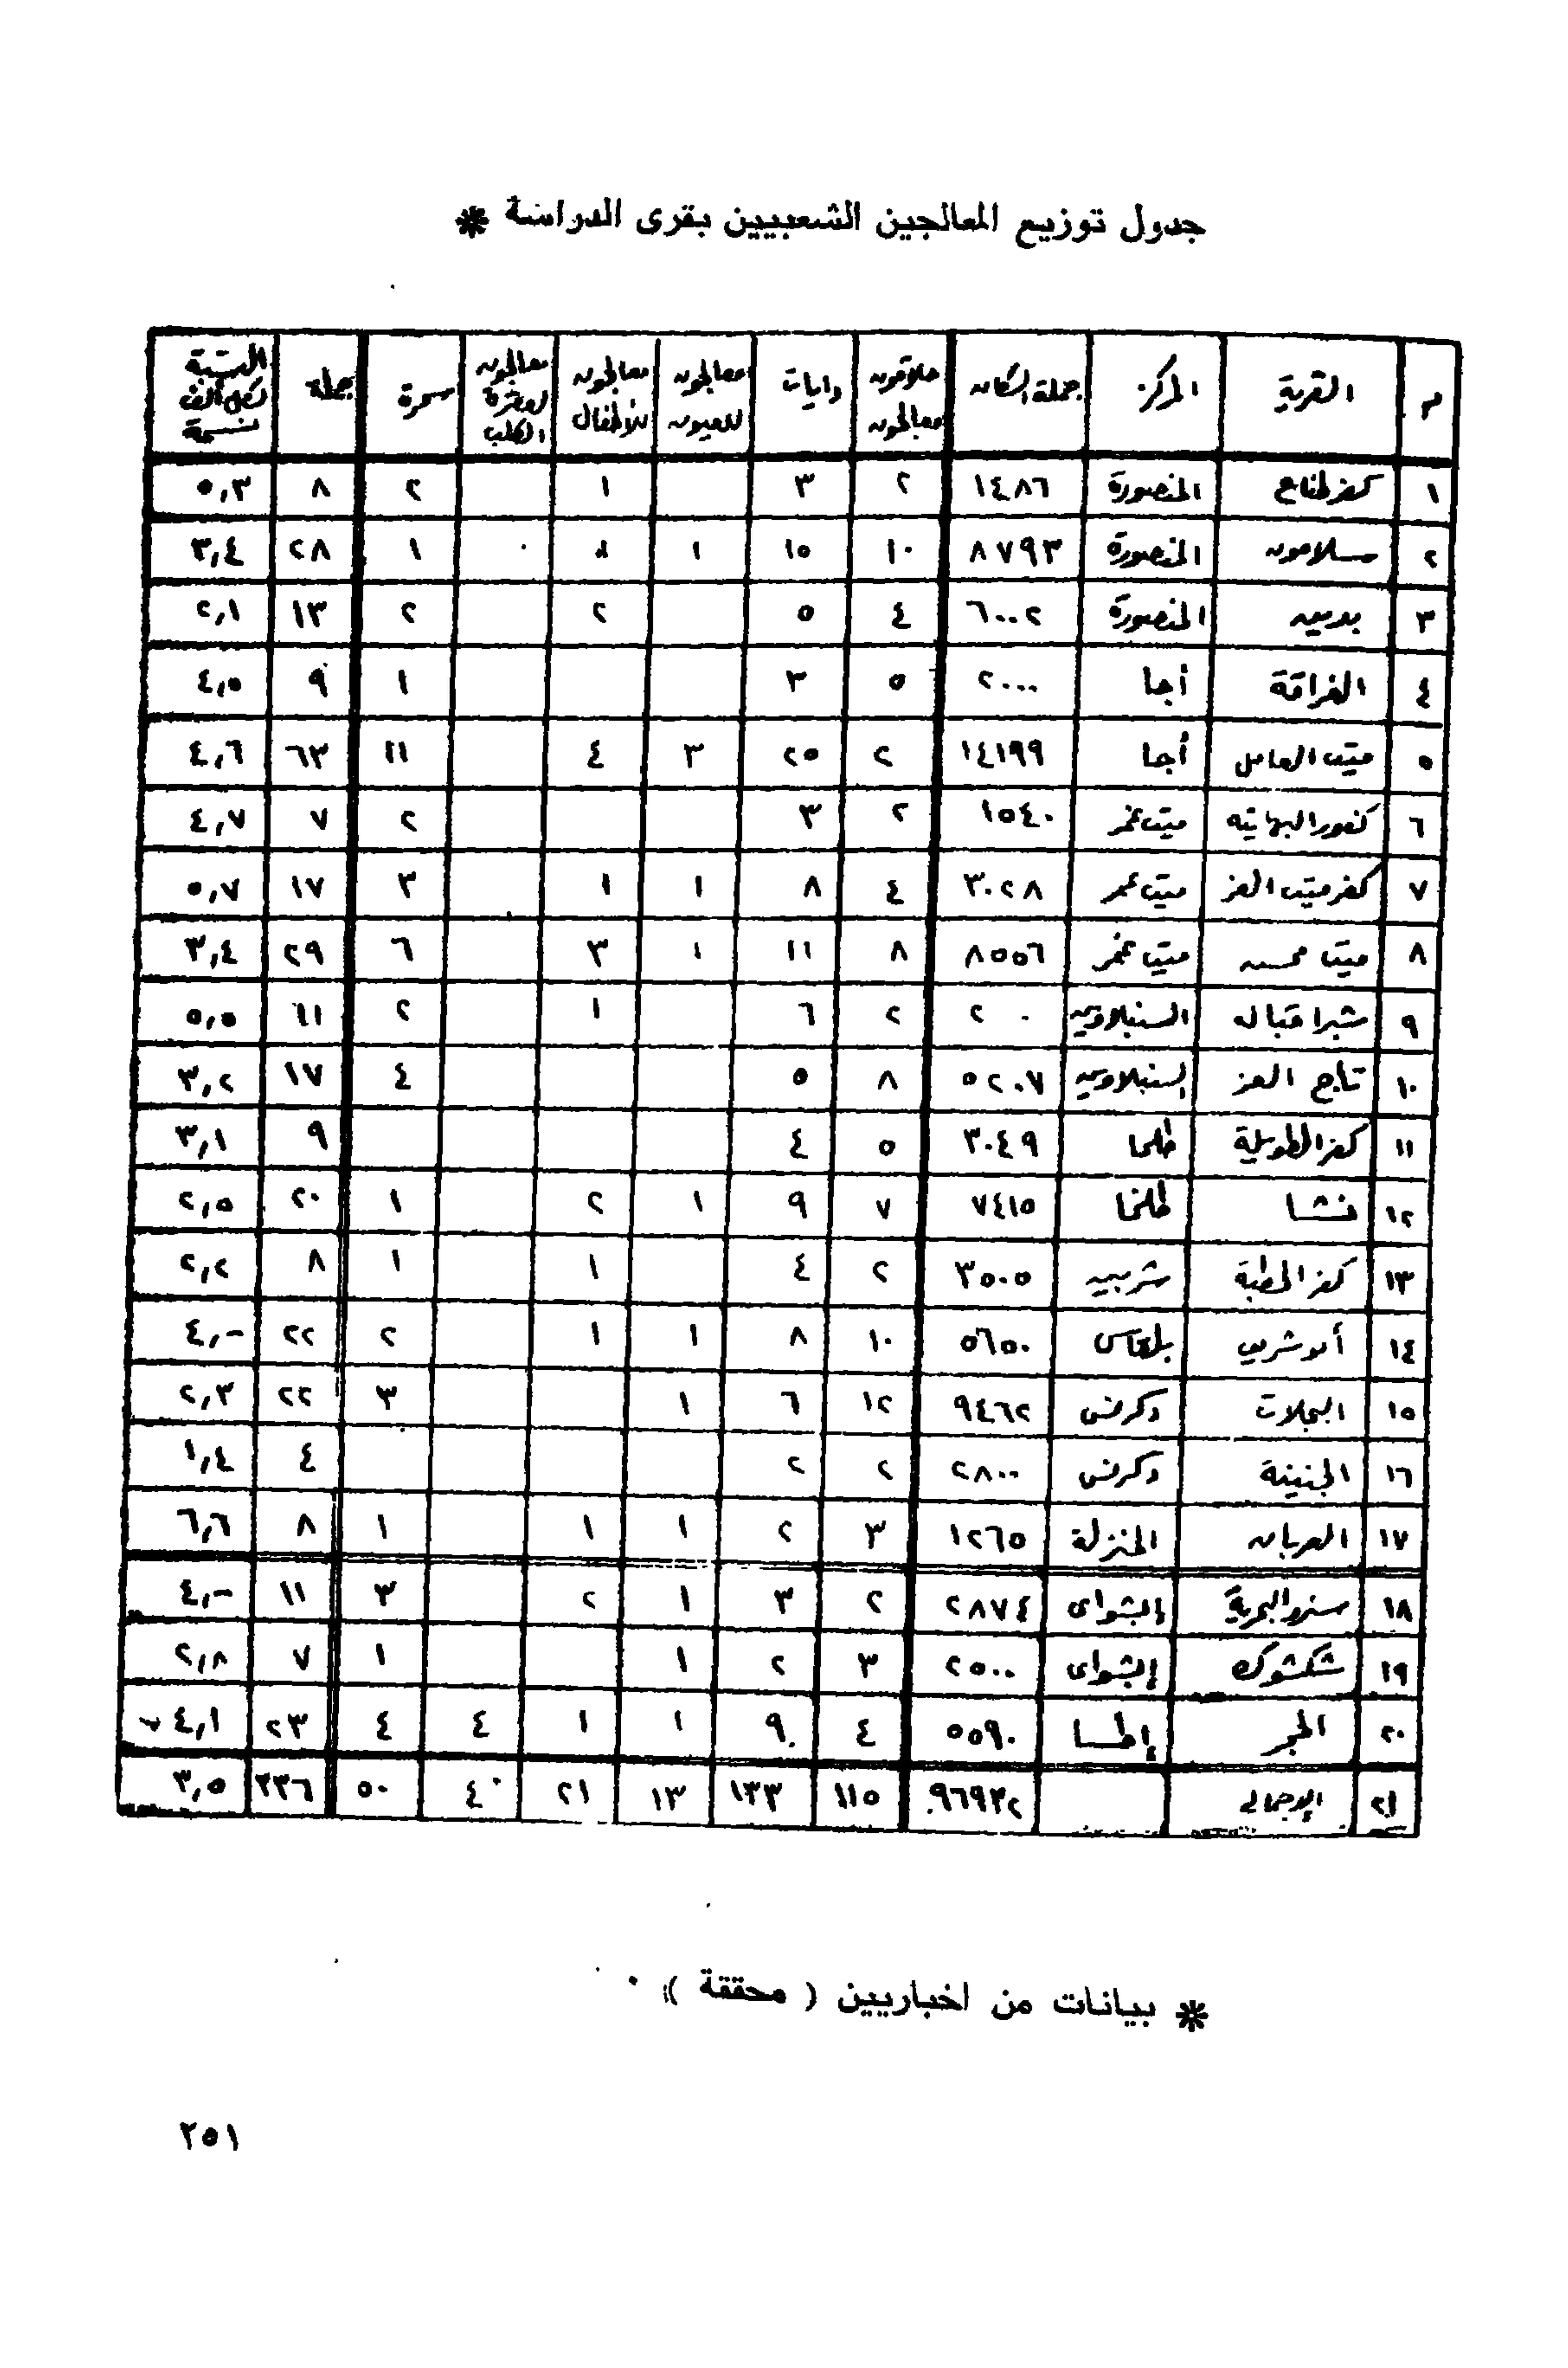 جدول توزيع المعالجين الشعبيين بقرى الدراسة *
م القرية المركز جملة السكان حلاقون معالجون دايات معالجون للعيون معالجون للأطفال معالجون لعقرة الكلب سحرة جملة النسبة لكل ألف نسمة
١ كفر طناح المنصورة ١٤٨٦ ٢ ٣ ١ ٢ ٨ ٥,٣
٢ سلامون المنصورة ٨٧٩٣ ١٠ ١٥ ١ ١ ٢٨ ٣,٤
٣ بدين المنصورة ٦٠٠٢ ٤ ٥ ٢ ٢ ١٣ ٢,١
٤ الغراقة أجا ٢٠٠٠ ٥ ٣ ١ ٩ ٤,٥
٥ ميت العامل أجا ١٤١٩٩ ٢ ٢٥ ٣ ٤ ١١ ٦٣ ٤,٦
٦ كفور البهايته ميت غمر ١٥٤٠ ٢ ٣ ٢ ٧ ٤,٧
٧ كفر ميت العز ميت غمر ٣٠٢٨ ٤ ٨ ١ ١ ٣ ١٧ ٥,٧
٨ ميت محسن ميت غمر ٨٥٥٦ ٨ ١١ ١ ٣ ٦ ٢٩ ٣,٤
٩ شبرا قباله السنبلاوين ٢ ٠ ٢ ٦ ١ ٢ ١١ ٥,٥
١٠ تاج العز السنبلاوين ٥٢٠٧ ٨ ٥ ٤ ١٧ ٣,٢
١١ كفر الطويلة طلخا ٣٠٤٩ ٥ ٤ ٩ ٣,١
١٢ نشا طلخا ٧٤١٥ ٧ ٩ ١ ٢ ١ ٢٠ ٢,٥
١٣ كفر الحطبة شربين ٣٥٠٥ ٢ ٤ ١ ١ ٨ ٢,٢
١٤ بلقاس ٥٦٥٠ ١٠ ٨ ١ ١ ٢ ٢٢ ٤,-
١٥ البجلات دكرنس ٩٤٦٢ ١٢ ٦ ١ ٣ ٢٢ ٢,٣
١٦ الجنينة دكرنس ٢٨٠٠ ٢ ٢ ٤ ١,٤
١٧ العربان المنزلة ١٢٦٥ ٣ ٢ ١ ١ ١ ٨ ٦,٦
١٨ سنرو البحرية إبشواى ٢٨٧٤ ٢ ٣ ١ ٢ ٣ ١١ ٤,-
١٩ شكشوك إبشواى ٢٥٠٠ ٣ ٢ ١ ١ ٧ ٢,٨
٢٠ الحجر إطسا ٥٥٩٠ ٤ ٩ ١ ١ ٤ ٤ ٢٣ ٤,١
٢١ الإجمالى ٩٦٩٣٢ ١١٥ ١٣٣ ١٣ ٢١ ٤ ٥٠ ٣٣٦ ٣,٥
* بيانات من اخباريين ( محققة ) .
٢٥١